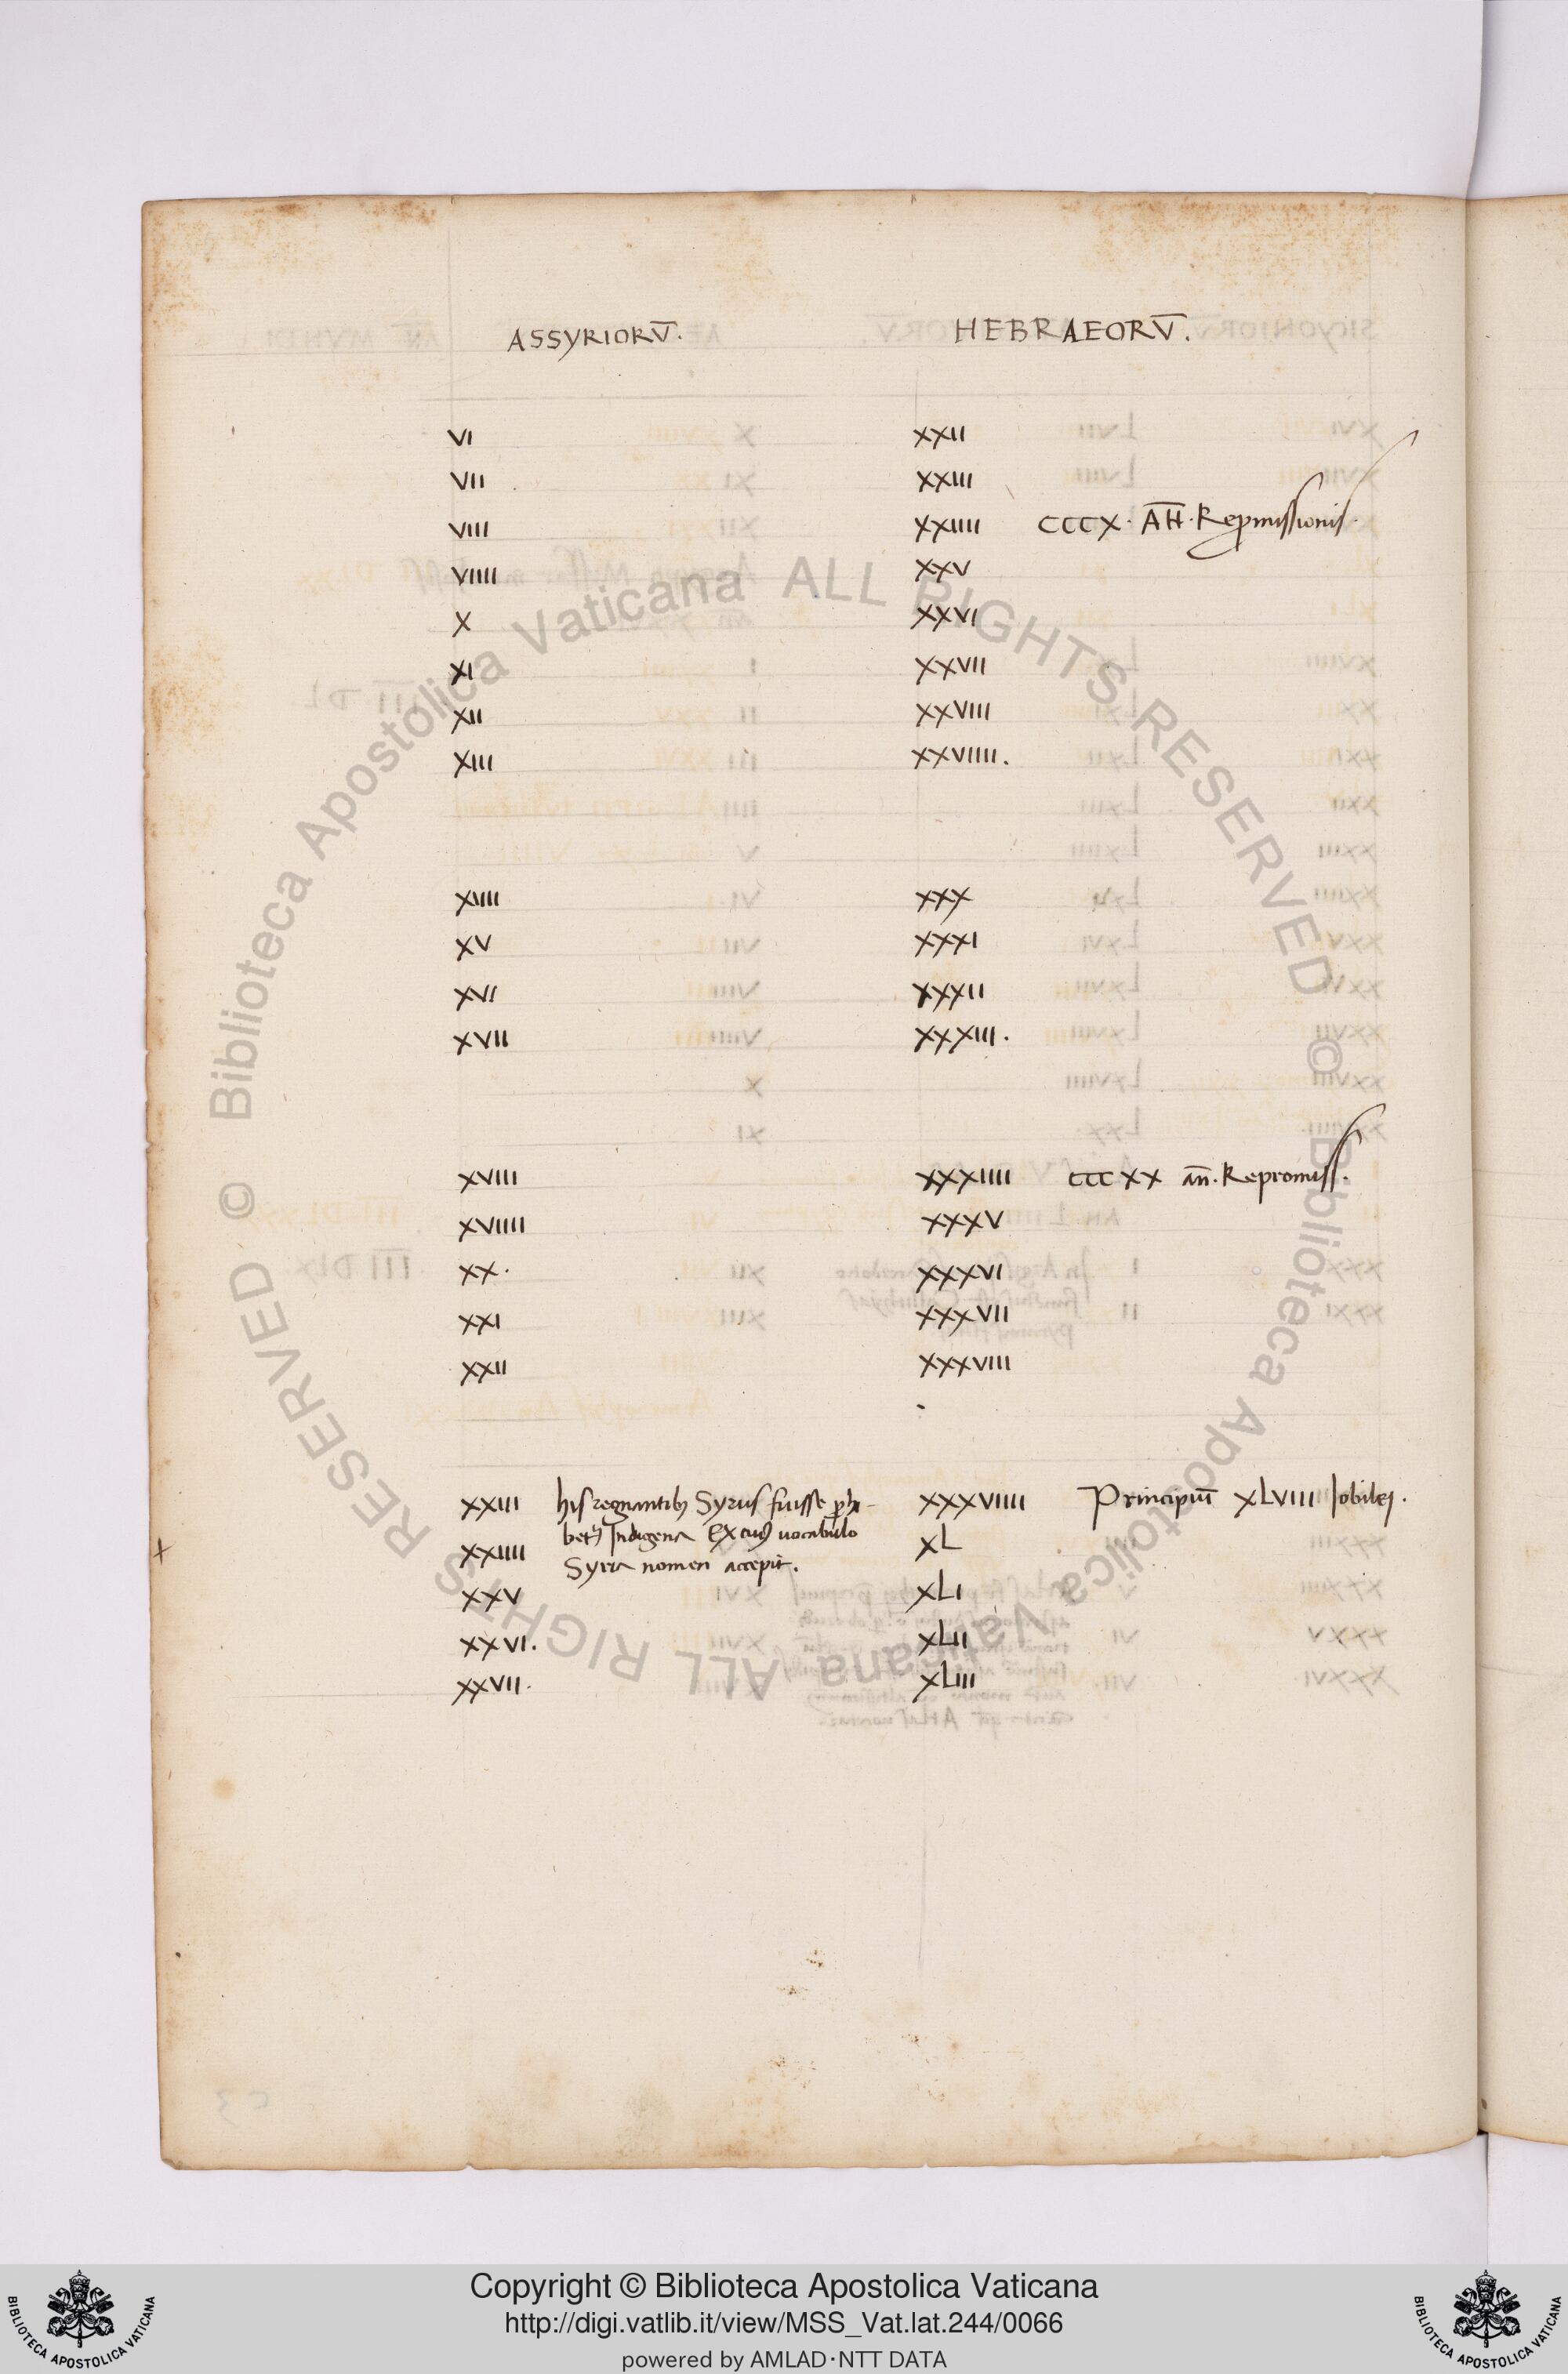 ASSYRIORV̅. HEBRAEORV̅.
VI XXII
VII XXIII
VIII XXIIII CCCX. AN̅. Repmissionis.
VIIII XXV
X XXVI
XI XXVII
XII XXVIII
XIII XXVIIII.
XIIII XXX
XV XXXI
XVI XXXII
XVII XXXIII.
XVIII XXXIIII CCCXX an̅. Repromiss.
XVIIII XXXV
XX. XXXVI
XXI XXXVII
XXII XXXVIII
XXIII his regnantib; Syrus fuisse ꝑhi- XXXVIIII Principiu̅ XLVIII Jobilei.
bet᷑ Indigena Ex cuiꝰ uocabulo
XXIIII XL
Syria nomen accepit.
XXV XLI
XXVI. XLII
XXVII. XLIII
© Biblioteca Apostolica Vaticana ALL RIGHTS RESERVED © Biblioteca Apostolica Vaticana ALL RIGHTS RESERVED
Copyright © Biblioteca Apostolica Vaticana
http://digi.vatlib.it/view/MSS_Vat.lat.244/0066
powered by AMLAD·NTT DATA
BIBLIOTECA APOSTOLICA VATICANA
BIBLIOTECA APOSTOLICA VATICANA